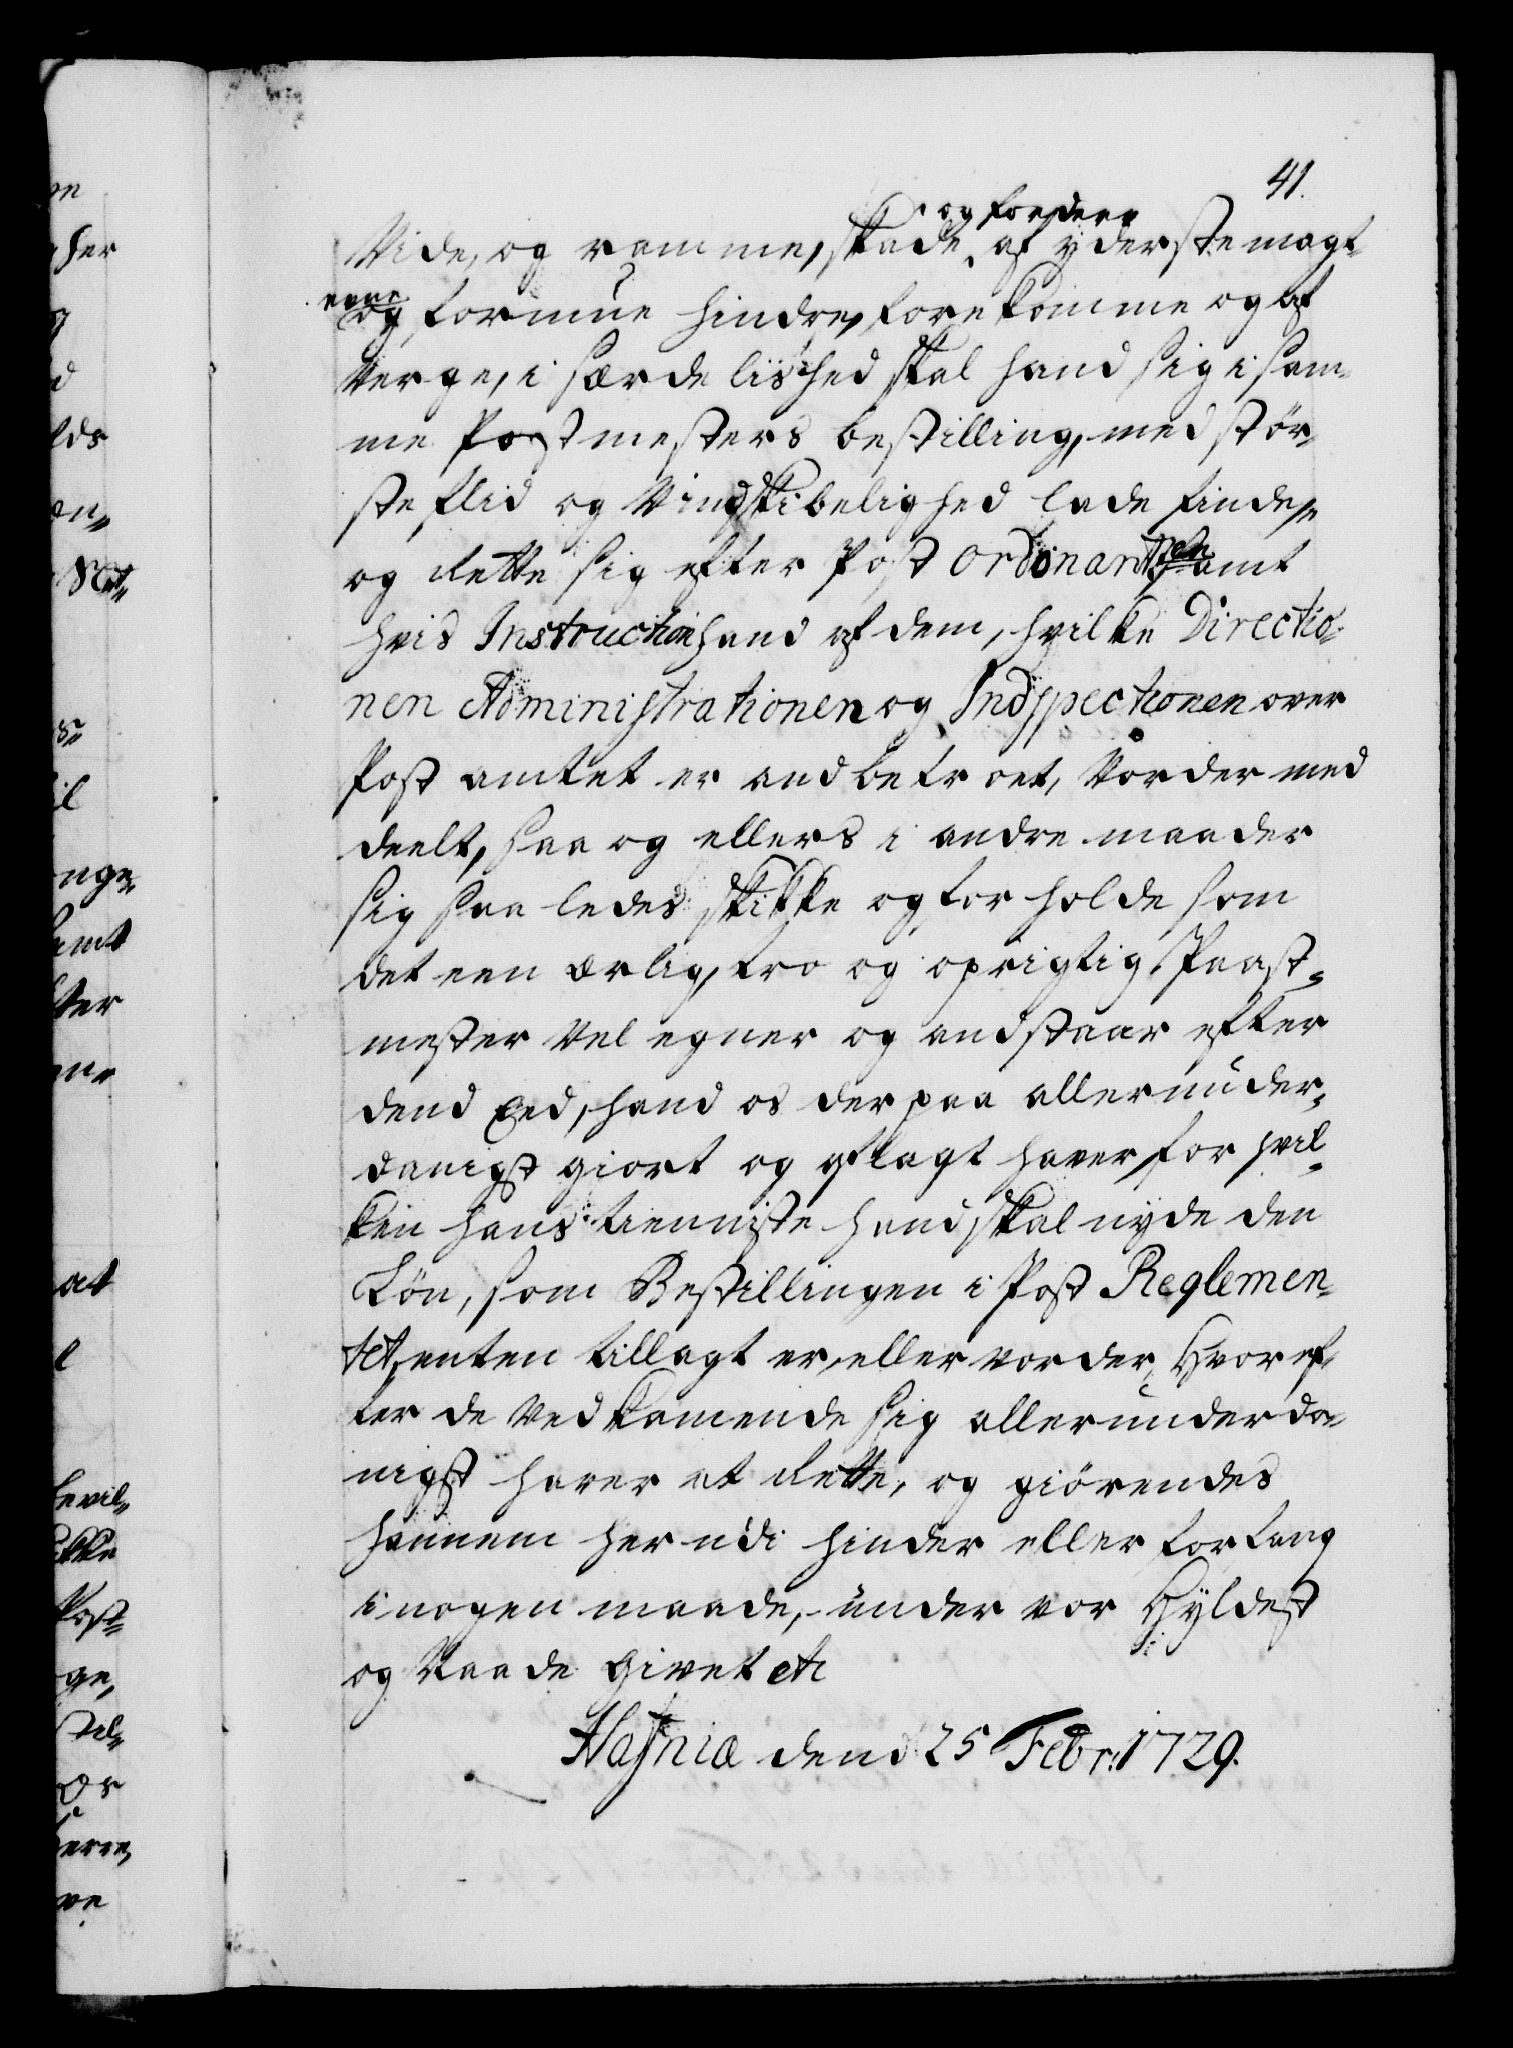 41.
og forderv
Vide, og ramme, skade, af yderste magt
evne
og formue hindre, forekomme og af
verge, i særdeliished skal hand sig i sam„
me Postmesters bestilling, med stör„
ste flid og Vindskibelighed lade finde,
og rette sig efter Post Ordonantzen samt
hvis Instruction hand af dem, hvilke Directio„
nen Administrationen og Indspectionen over
Post amtet er andbetroet, vorder med
deelt, saa og ellers i andre maader
sig saaledes skikke og forholde som
det een ærlig, tro og oprigtig Paast„
mester vel egner og andstaar efter
dend Eed, hand os derpaa allerunder„
danigst giort og aflagt haver, for hvil„
ken hans tienniste hand skal nyde den
Lön, som Bestillingen i Post Reglemen„
tet, enten tillagt er, eller vorder, Hvoref„
ter de Vedkomende sig allerunderda„
nigst haver at rette, og giörendes
hannem her udi hinder eller forfang
i nogen maade, under vor Hyldest
og Naade Givet etc
Hafniæ dend 25 Febr: 1729.